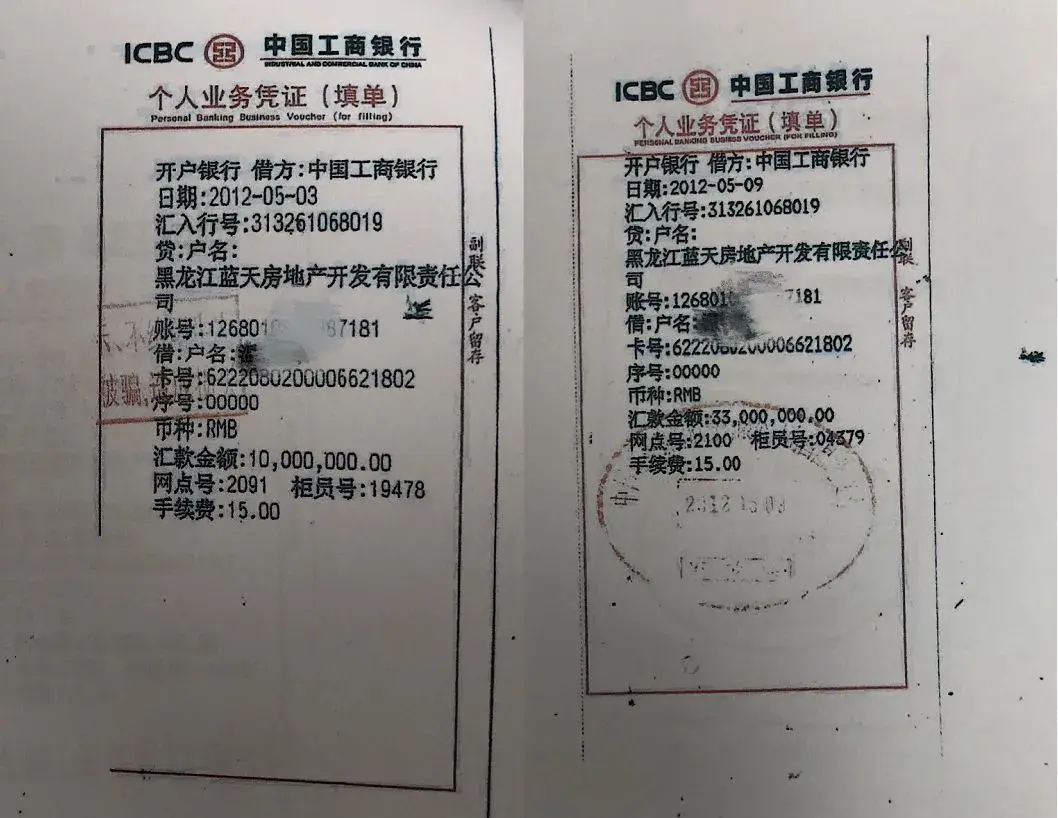 ICBC 中国工商银行
INDUSTRIAL AND COMMERCIAL BANK OF CHINA
个人业务凭证（填单）
Personal Banking Business Voucher (for filling)
开户银行 借方:中国工商银行
日期:2012-05-03
汇入行号:313261068019
贷:户名:
黑龙江蓝天房地产开发有限责任公
司
账号:126801 87181
借:户名:
卡号:6222080200006621802
序号:00000
币种:RMB
汇款金额:10,000,000.00
网点号:2091 柜员号:19478
手续费:15.00
副联 客户留存
被骗
ICBC 中国工商银行
个人业务凭证（填单）
PERSONAL BANKING BUSINESS VOUCHER (FOR FILLING)
开户银行 借方:中国工商银行
日期:2012-05-09
汇入行号:313261068019
贷:户名:
黑龙江蓝天房地产开发有限责任公
司
账号:12680 7181
借:户名:
卡号:6222080200006621802
序号:00000
币种:RMB
汇款金额:33,000,000.00
网点号:2100 柜员号:04379
手续费:15.00
副联 客户留存